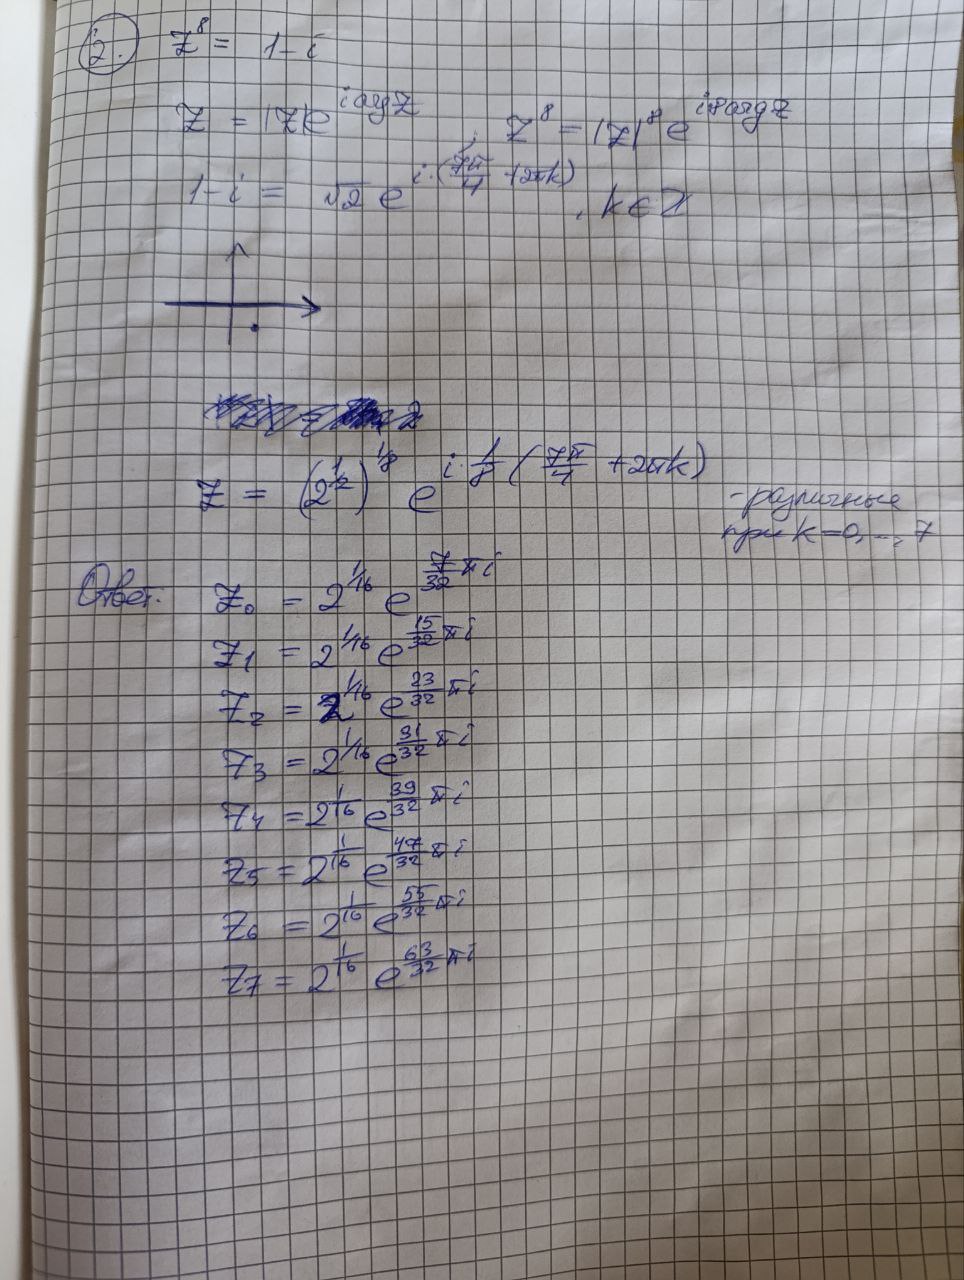 2. z⁸ = 1-i
z = |z|e^{i arg z}, z⁸ = |z|⁸ e^{i8arg z}
1-i = √2 e^{i·(7π/4 + 2πk)}, k∈Z
z = (2^{1/2})^{1/8} e^{i·1/8(7π/4 + 2πk)}
- различные
при k=0,...,7
Ответ: z₀ = 2^{1/16} e^{7/32 πi}
z₁ = 2^{1/16} e^{15/32 πi}
z₂ = 2^{1/16} e^{23/32 πi}
z₃ = 2^{1/16} e^{31/32 πi}
z₄ = 2^{1/16} e^{39/32 πi}
z₅ = 2^{1/16} e^{47/32 πi}
z₆ = 2^{1/16} e^{55/32 πi}
z₇ = 2^{1/16} e^{63/32 πi}